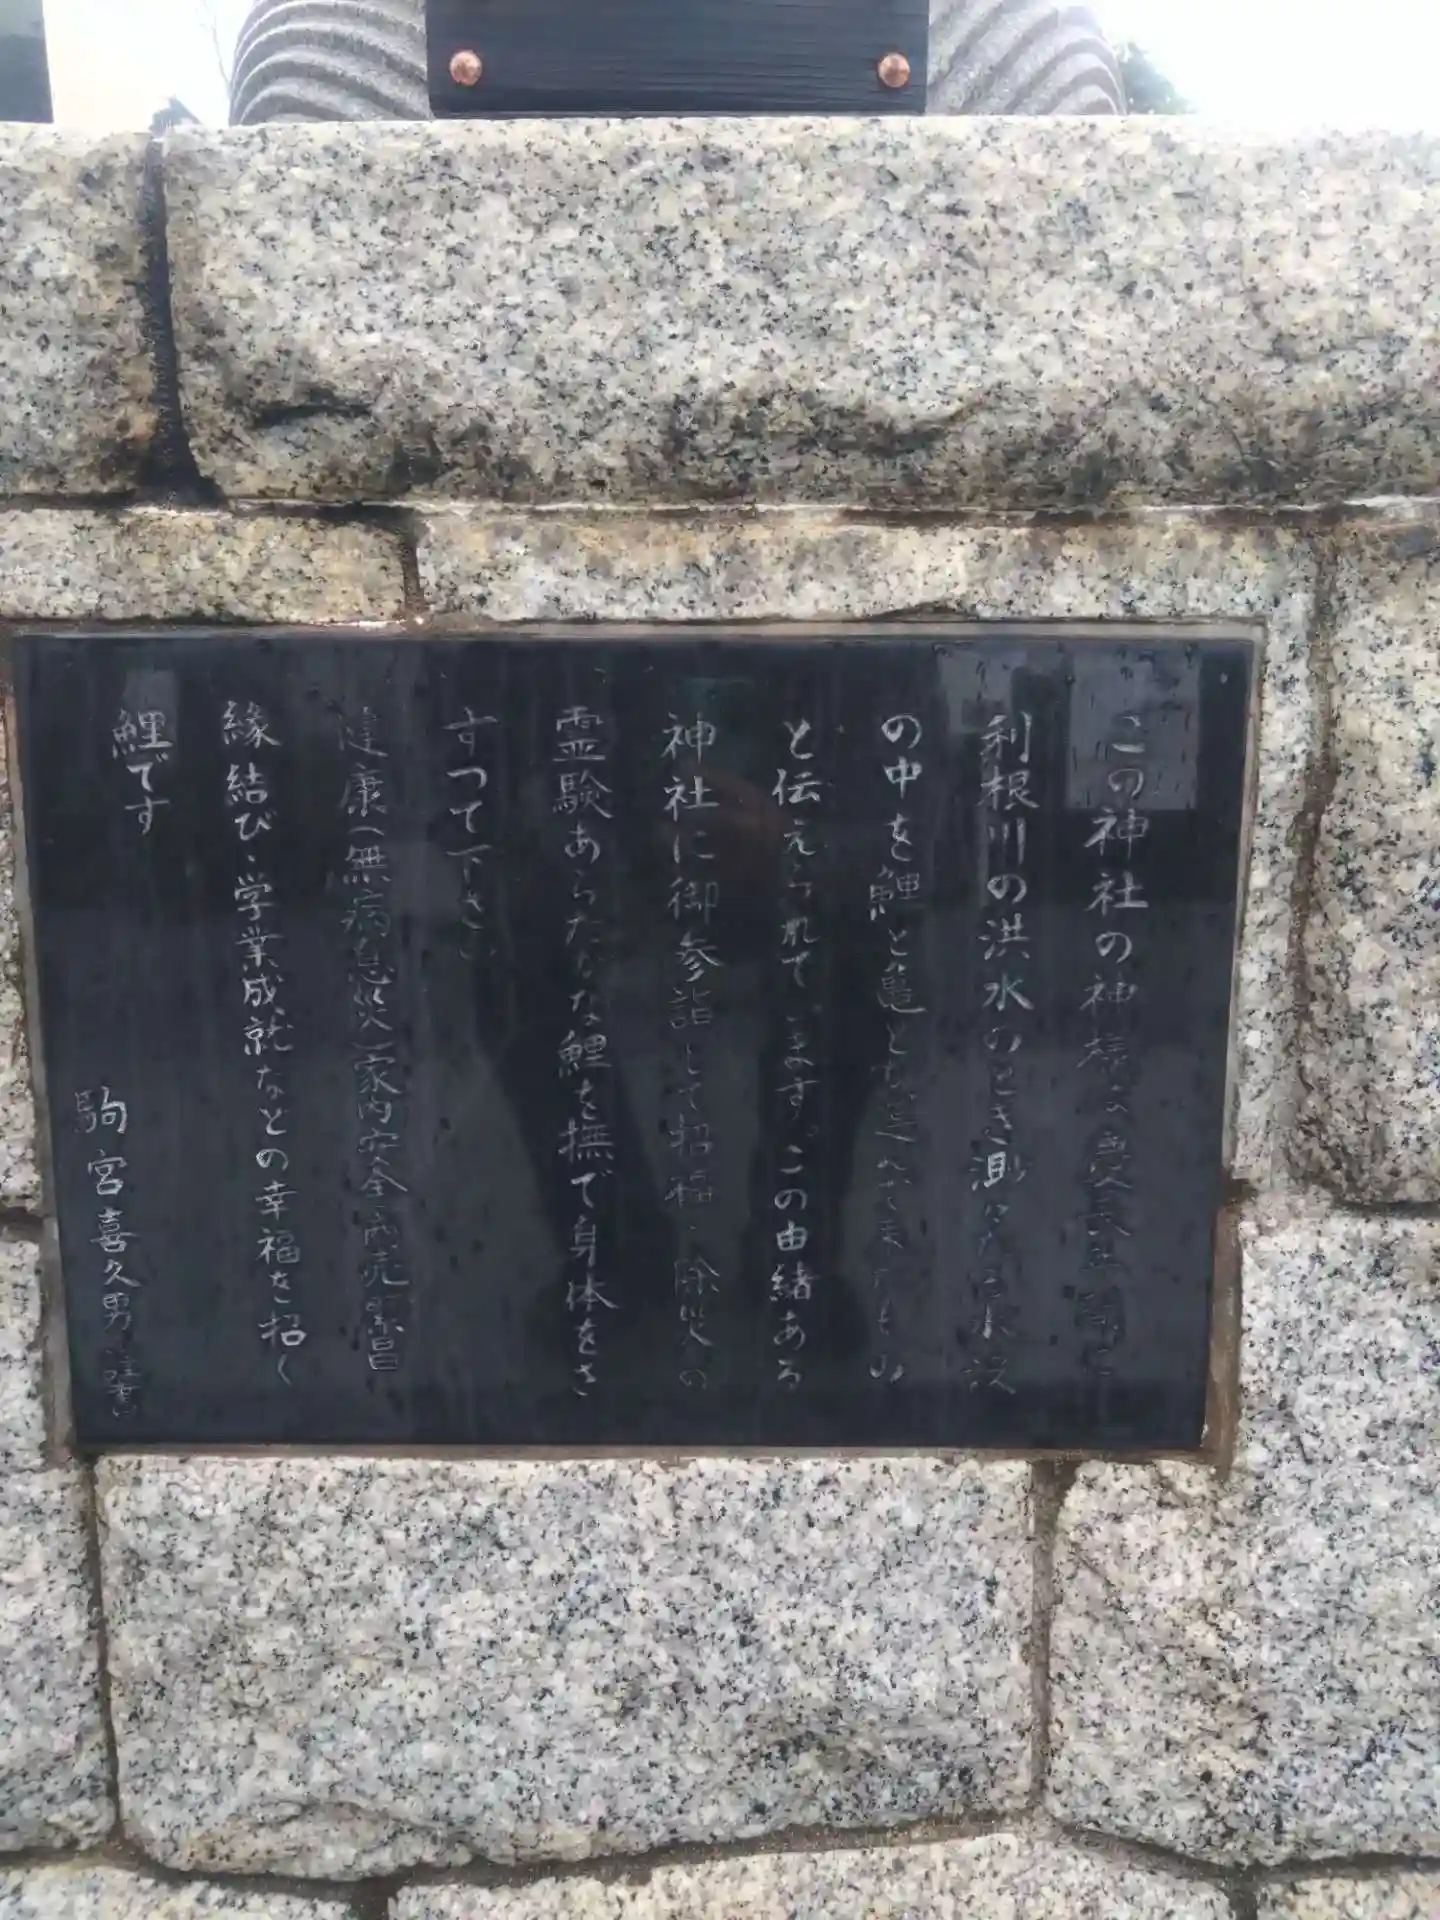 この神社の神様は奥庚年間に
利根川の洪水のとき渺々たる水流
の中を鯉と亀とが運んで来たもの
と伝えられています。この由緒ある
神社に御参詣して招福・除災の
霊験あらたかな鯉を撫で身体をさ
すつて下さい
健康(無病息災)家内安全商売繁昌
縁結び・学業成就などの幸福を招く
鯉です
駒宮喜久男謹書